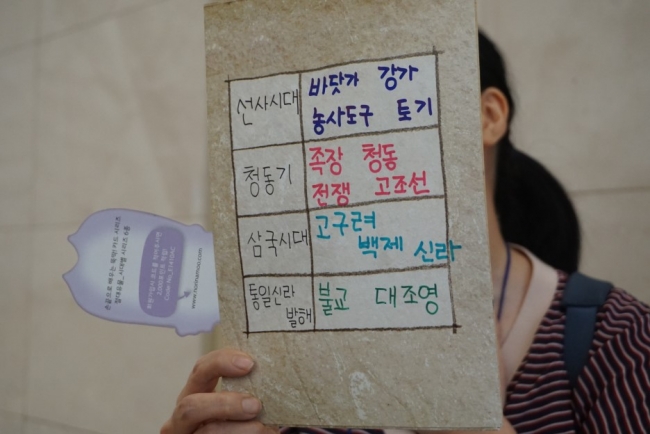 선사시대
바닷가 강가
농사도구 토기
청동기
족장 청동
전쟁 고조선
삼국시대
고구려
백제 신라
통일신라
발해
불교 대조영